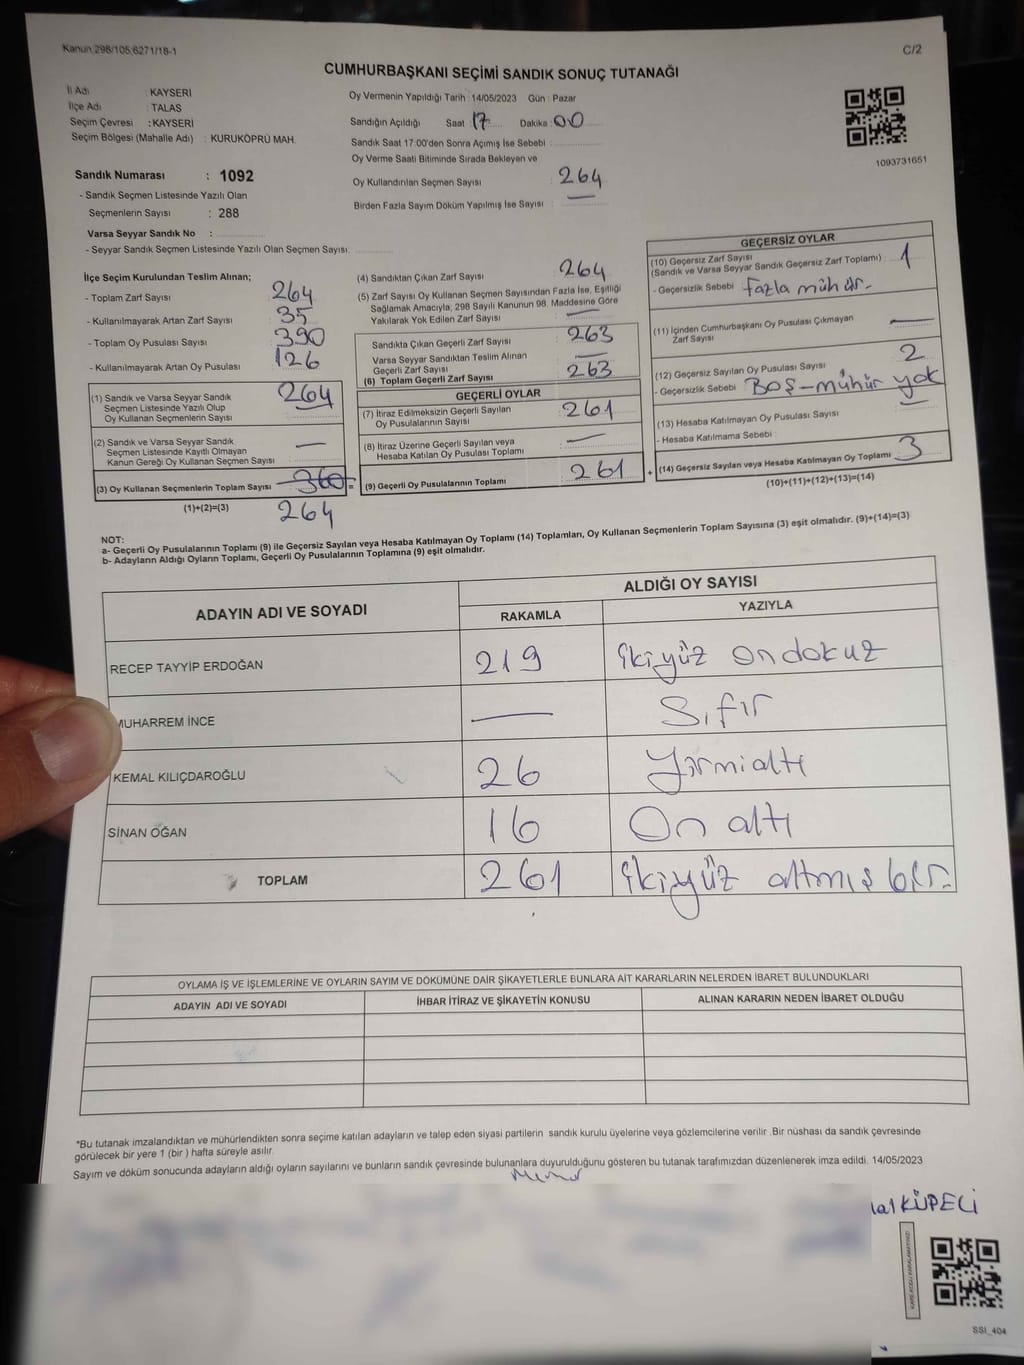 Kanun 298/105,6271/18-1
C/2
CUMHURBAŞKANI SEÇİMİ SANDIK SONUÇ TUTANAĞI
İl Adı : KAYSERİ
İlçe Adı : TALAS
Seçim Çevresi : KAYSERİ
Seçim Bölgesi (Mahalle Adı) : KURUKÖPRÜ MAH.
Oy Vermenin Yapıldığı Tarih : 14/05/2023 Gün : Pazar
Sandığın Açıldığı Saat : 17 Dakika : 00
Sandık Saat 17:00'den Sonra Açımış İse Sebebi :
Oy Verme Saati Bitiminde Sırada Bekleyen ve
Oy Kullandırılan Seçmen Sayısı : 264
Birden Fazla Sayım Döküm Yapılmış İse Sayısı : —
1093731651
Sandık Numarası : 1092
- Sandık Seçmen Listesinde Yazılı Olan
Seçmenlerin Sayısı : 288
Varsa Seyyar Sandık No :
- Seyyar Sandık Seçmen Listesinde Yazılı Olan Seçmen Sayısı:
İlçe Seçim Kurulundan Teslim Alınan;
- Toplam Zarf Sayısı : 264
- Kullanılmayarak Artan Zarf Sayısı : 35
- Toplam Oy Pusulası Sayısı : 390
- Kullanılmayarak Artan Oy Pusulası : 126
(1) Sandık ve Varsa Seyyar Sandık
Seçmen Listesinde Yazılı Olup
Oy Kullanan Seçmenlerin Sayısı : 264
(2) Sandık ve Varsa Seyyar Sandık
Seçmen Listesinde Kayıtlı Olmayan
Kanun Gereği Oy Kullanan Seçmen Sayısı : —
(3) Oy Kullanan Seçmenlerin Toplam Sayısı : 360 =
(1)+(2)=(3) 264
(4) Sandıktan Çıkan Zarf Sayısı : 264
(5) Zarf Sayısı Oy Kullanan Seçmen Sayısından Fazla İse, Eşitliği
Sağlamak Amacıyla, 298 Sayılı Kanunun 98. Maddesine Göre
Yakılarak Yok Edilen Zarf Sayısı : —
Sandıkta Çıkan Geçerli Zarf Sayısı : 263
Varsa Seyyar Sandıktan Teslim Alınan
Geçerli Zarf Sayısı : —
(6) Toplam Geçerli Zarf Sayısı : 263
GEÇERLİ OYLAR
(7) İtiraz Edilmeksizin Geçerli Sayılan
Oy Pusulalarının Sayısı : 261
(8) İtiraz Üzerine Geçerli Sayılan veya
Hesaba Katılan Oy Pusulası Toplamı : —
(9) Geçerli Oy Pusulalarının Toplamı : 261 +
GEÇERSİZ OYLAR
(10) Geçersiz Zarf Sayısı
(Sandık ve Varsa Seyyar Sandık Geçersiz Zarf Toplamı) : 1
- Geçersizlik Sebebi : Fazla mühür.
(11) İçinden Cumhurbaşkanı Oy Pusulası Çıkmayan
Zarf Sayısı : —
(12) Geçersiz Sayılan Oy Pusulası Sayısı : 2
- Geçersizlik Sebebi : BOŞ - mühür yok
(13) Hesaba Katılmayan Oy Pusulası Sayısı : —
- Hesaba Katılmama Sebebi :
(14) Geçersiz Sayılan veya Hesaba Katılmayan Oy Toplamı : 3
(10)+(11)+(12)+(13)=(14)
NOT:
a- Geçerli Oy Pusulalarının Toplamı (9) ile Geçersiz Sayılan veya Hesaba Katılmayan Oy Toplamı (14) Toplamları, Oy Kullanan Seçmenlerin Toplam Sayısına (3) eşit olmalıdır. (9)+(14)=(3)
b- Adayların Aldığı Oyların Toplamı, Geçerli Oy Pusulalarının Toplamına (9) eşit olmalıdır.
ADAYIN ADI VE SOYADI
ALDIĞI OY SAYISI
RAKAMLA YAZIYLA
RECEP TAYYİP ERDOĞAN 219 ikiyüz ondokuz
MUHARREM İNCE — Sıfır
KEMAL KILIÇDAROĞLU 26 Yirmialtı
SİNAN OĞAN 16 On altı
TOPLAM 261 ikiyüz altmış bir.
OYLAMA İŞ VE İŞLEMLERİNE VE OYLARIN SAYIM VE DÖKÜMÜNE DAİR ŞİKAYETLERLE BUNLARA AİT KARARLARIN NELERDEN İBARET BULUNDUKLARI
ADAYIN ADI VE SOYADI İHBAR İTİRAZ VE ŞİKAYETİN KONUSU ALINAN KARARIN NEDEN İBARET OLDUĞU
*Bu tutanak imzalandıktan ve mühürlendikten sonra seçime katılan adayların ve talep eden siyasi partilerin sandık kurulu üyelerine veya gözlemcilerine verilir .Bir nüshası da sandık çevresinde
görülecek bir yere 1 (bir ) hafta süreyle asılır.
Sayım ve döküm sonucunda adayların aldığı oyların sayılarını ve bunların sandık çevresinde bulunanlara duyurulduğunu gösteren bu tutanak tarafımızdan düzenlenerek imza edildi. 14/05/2023
KÜPELİ
SSI_404